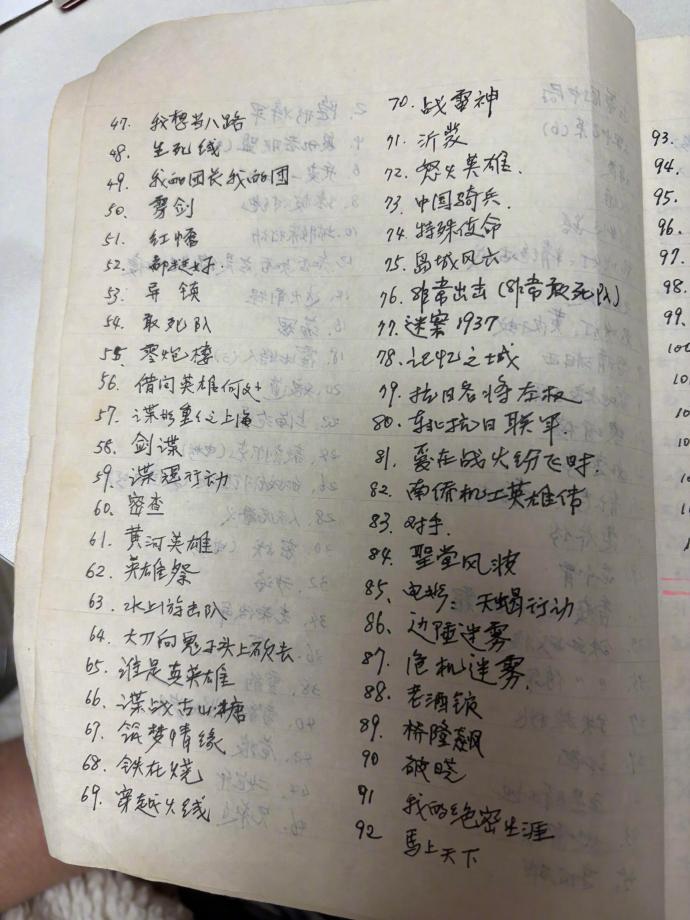 47. 我想当八路
48. 生死线
49. 我的团长我的团
50. 雾剑
51. 红糖
52.
53. 导
54. 敢死队
55. 零炮楼
56. 借问英雄何处
57. 谍影重重之上海
58. 剑谍
59. 谍冠行动
60. 密查
61. 黄河英雄
62. 英雄祭
63. 水上游击队
64. 大刀向鬼子头上砍去
65. 谁是真英雄
66. 谍战古山塘
67. 筑梦情缘
68. 铁在烧
69. 穿越火线
70. 战雷神
71. 沂蒙
72. 怒火英雄.
73. 中国骑兵.
74. 特殊使命
75. 岛城风云
76. 非常出击(非常敢死队)
77. 迷案1937
78. 记忆之城
79. 抗日名将左权
80. 东北抗日联军.
81. 爱在战火纷飞时.
82. 南侨机工英雄传
83. 对手.
84. 聖堂风波
85. 电影: 天蝎行动
86. 边陲迷雾
87. 危机迷雾.
88. 老酒馆
89. 桥隆飙
90 破晓
91 我的绝密生涯
92 馬上天下
93.
94.
95.
96.
97.
98.
99.